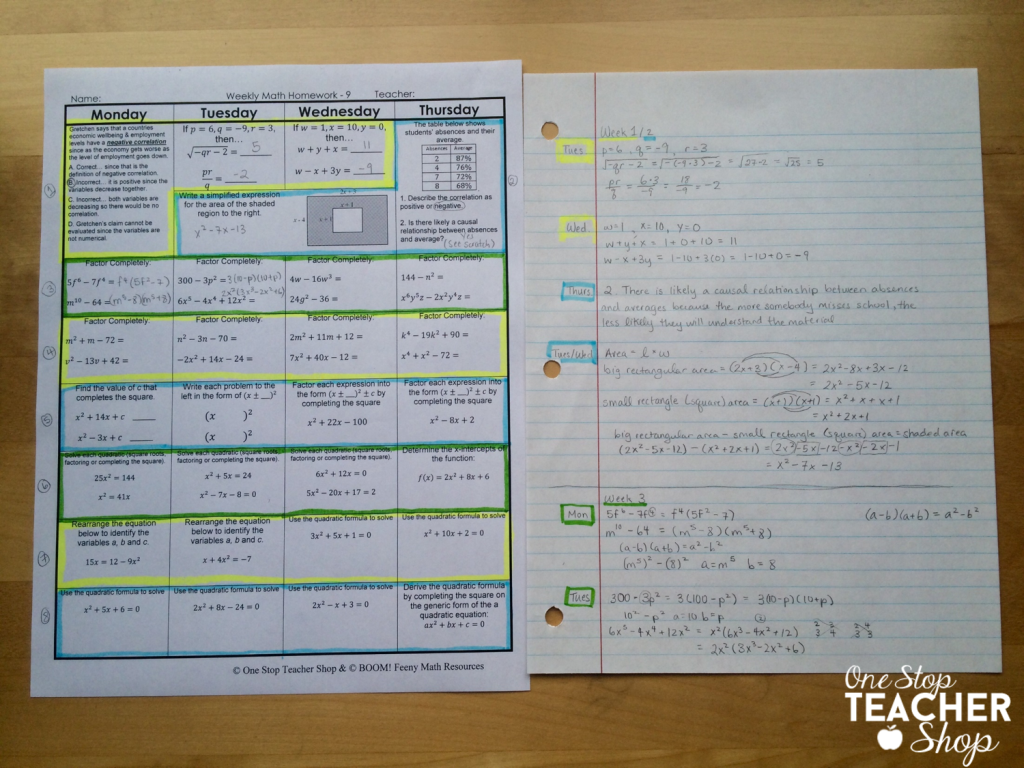 Name: Weekly Math Homework - 9 Teacher:
Monday Tuesday Wednesday Thursday
Gretchen says that a countries
economic wellbeing & employment
levels have a negative correlation
since as the economy gets worse as
the level of employment goes down.
A. Correct... since that is the
definition of negative correlation.
B. Incorrect... it is positive since the
variables decrease together.
C. Incorrect... both variables are
decreasing so there would be no
correlation.
D. Gretchen's claim cannot be
evaluated since the variables are
not numerical.
If p = 6, q = −9, r = 3,
then...
√−qr − 2 = 5
pr/q = -2
If w = 1, x = 10, y = 0,
then...
w + y + x = 11
w − x + 3y = -9
The table below shows
students' absences and their
average.
Absences Average
2 87%
4 76%
7 72%
8 68%
1. Describe the correlation as
positive or negative.
2. Is there likely a causal
relationship between absences
and average? Yes
(See scratch)
Write a simplified expression
for the area of the shaded
region to the right.
x² - 7x - 13
Factor Completely: Factor Completely: Factor Completely: Factor Completely:
5f⁶ − 7f⁴ = f⁴(5f² - 7) 300 − 3p² = 3(10-p)(10+p) 4w − 16w³ = 144 − n² =
m¹⁰ − 64 = (m⁵-8)(m⁵+8) 6x⁵ − 4x⁴ + 12x² = 2x²(3x³-2x²+6) 24g² − 36 = x⁶y³z − 2x²y⁴z =
Factor Completely: Factor Completely: Factor Completely: Factor Completely:
m² + m − 72 = n² − 3n − 70 = 2m² + 11m + 12 = k⁴ − 19k² + 90 =
v² − 13v + 42 = −2x² + 14x − 24 = 7x² + 40x − 12 = x⁴ + x² − 72 =
Find the value of c that
completes the square.
x² + 14x + c
x² − 3x + c
Write each problem to the
left in the form of (x ± __)²
(x )²
(x )²
Factor each expression into
the form (x ± __)² ± c by
completing the square
x² + 22x − 100
Factor each expression into
the form (x ± __)² ± c by
completing the square
x² − 8x + 2
Solve each quadratic (square roots,
factoring or completing the square).
25x² = 144
x² = 41x
Solve each quadratic (square roots,
factoring or completing the square).
x² + 5x = 24
x² − 7x − 8 = 0
Solve each quadratic (square roots,
factoring or completing the square).
6x² + 12x = 0
5x² − 20x + 17 = 2
Determine the x-intercepts of
the function:
f(x) = 2x² + 8x + 6
Rearrange the equation
below to identify the
variables a, b and c.
15x = 12 − 9x²
Rearrange the equation
below to identify the
variables a, b and c.
x + 4x² = −7
Use the quadratic formula to solve
3x² + 5x + 1 = 0
Use the quadratic formula to solve
x² + 10x + 2 = 0
Use the quadratic formula to solve
x² + 5x + 6 = 0
Use the quadratic formula to solve
2x² + 8x − 24 = 0
Use the quadratic formula to solve
2x² − x + 3 = 0
Derive the quadratic formula
by completing the square on
the generic form of the a
quadratic equation:
ax² + bx + c = 0
© One Stop Teacher Shop & © BOOM! Feeny Math Resources
Week 1/2
Tues p=6, q=-9, r=3
√-qr-2 = √-(-9·3)-2 = √27-2 = √25 = 5
pr/q = 6·3/-9 = 18/-9 = -2
Wed w=1, x=10, y=0
w+y+x = 1+0+10 = 11
w-x+3y = 1-10+3(0) = 1-10+0 = -9
Thurs 2. There is likely a causal relationship between absences
and averages because the more somebody misses school, the
less likely they will understand the material
Tues/Wed Area = l·w
big rectangular area = (2x+3)(x-4) = 2x²-8x+3x-12
= 2x²-5x-12
small rectangle (square) area = (x+1)(x+1) = x²+x+x+1
= x²+2x+1
big rectangular area - small rectangle (square) area = shaded area
(2x²-5x-12)-(x²+2x+1) = 2x²-5x-12-x²-2x-1
= x²-7x-13
Week 3
Mon 5f⁶-7f⁴ = f⁴(5f²-7) (a-b)(a+b) = a²-b²
m¹⁰-64 = (m⁵-8)(m⁵+8)
(a-b)(a+b) = a²-b²
(m⁵)²-(8)² a=m⁵ b=8
Tues 300-3p² = 3(100-p²) = 3(10-p)(10+p)
10²-p² a=10 b=p
6x⁵-4x⁴+12x² = x²(6x³-4x²+12)
= 2x²(3x³-2x²+6)
One Stop
TEACHER
Shop